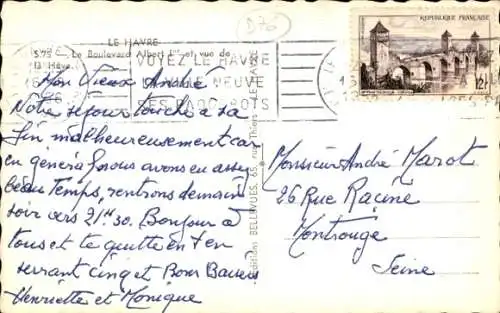 D76
LE HAVRE
S79 Le Boulevard Albert 1er et vue de
la Hève
VOYEZ LE HAVRE
SA VILLE NEUVE
SES PAQUEBOTS
REPUBLIQUE FRANÇAISE
12F
Mon Vieux André
Notre séjour touche à sa
fin malheureusement car
en général nous avons eu assez
beau Temps, rentrons demain
soir vers 21H30. Bonjour à
tous et te quitte en t'en
serrant cinq et Bons Baisers
Henriette et Monique
Editions BELLEVUES, 65, rue Thiers - LE HAVRE
Monsieur André Marot
26 Rue Racine
Montrouge
Seine